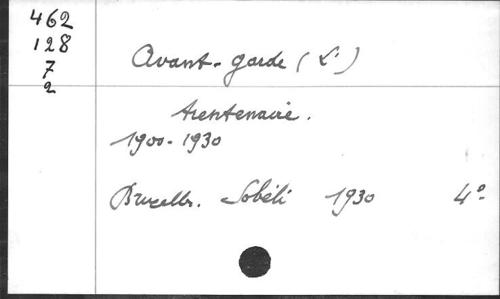 462
128
7
2
Avant-garde (L')
trentenaire.
1900-1930
Bruxelles. Sobéli 1930 4°